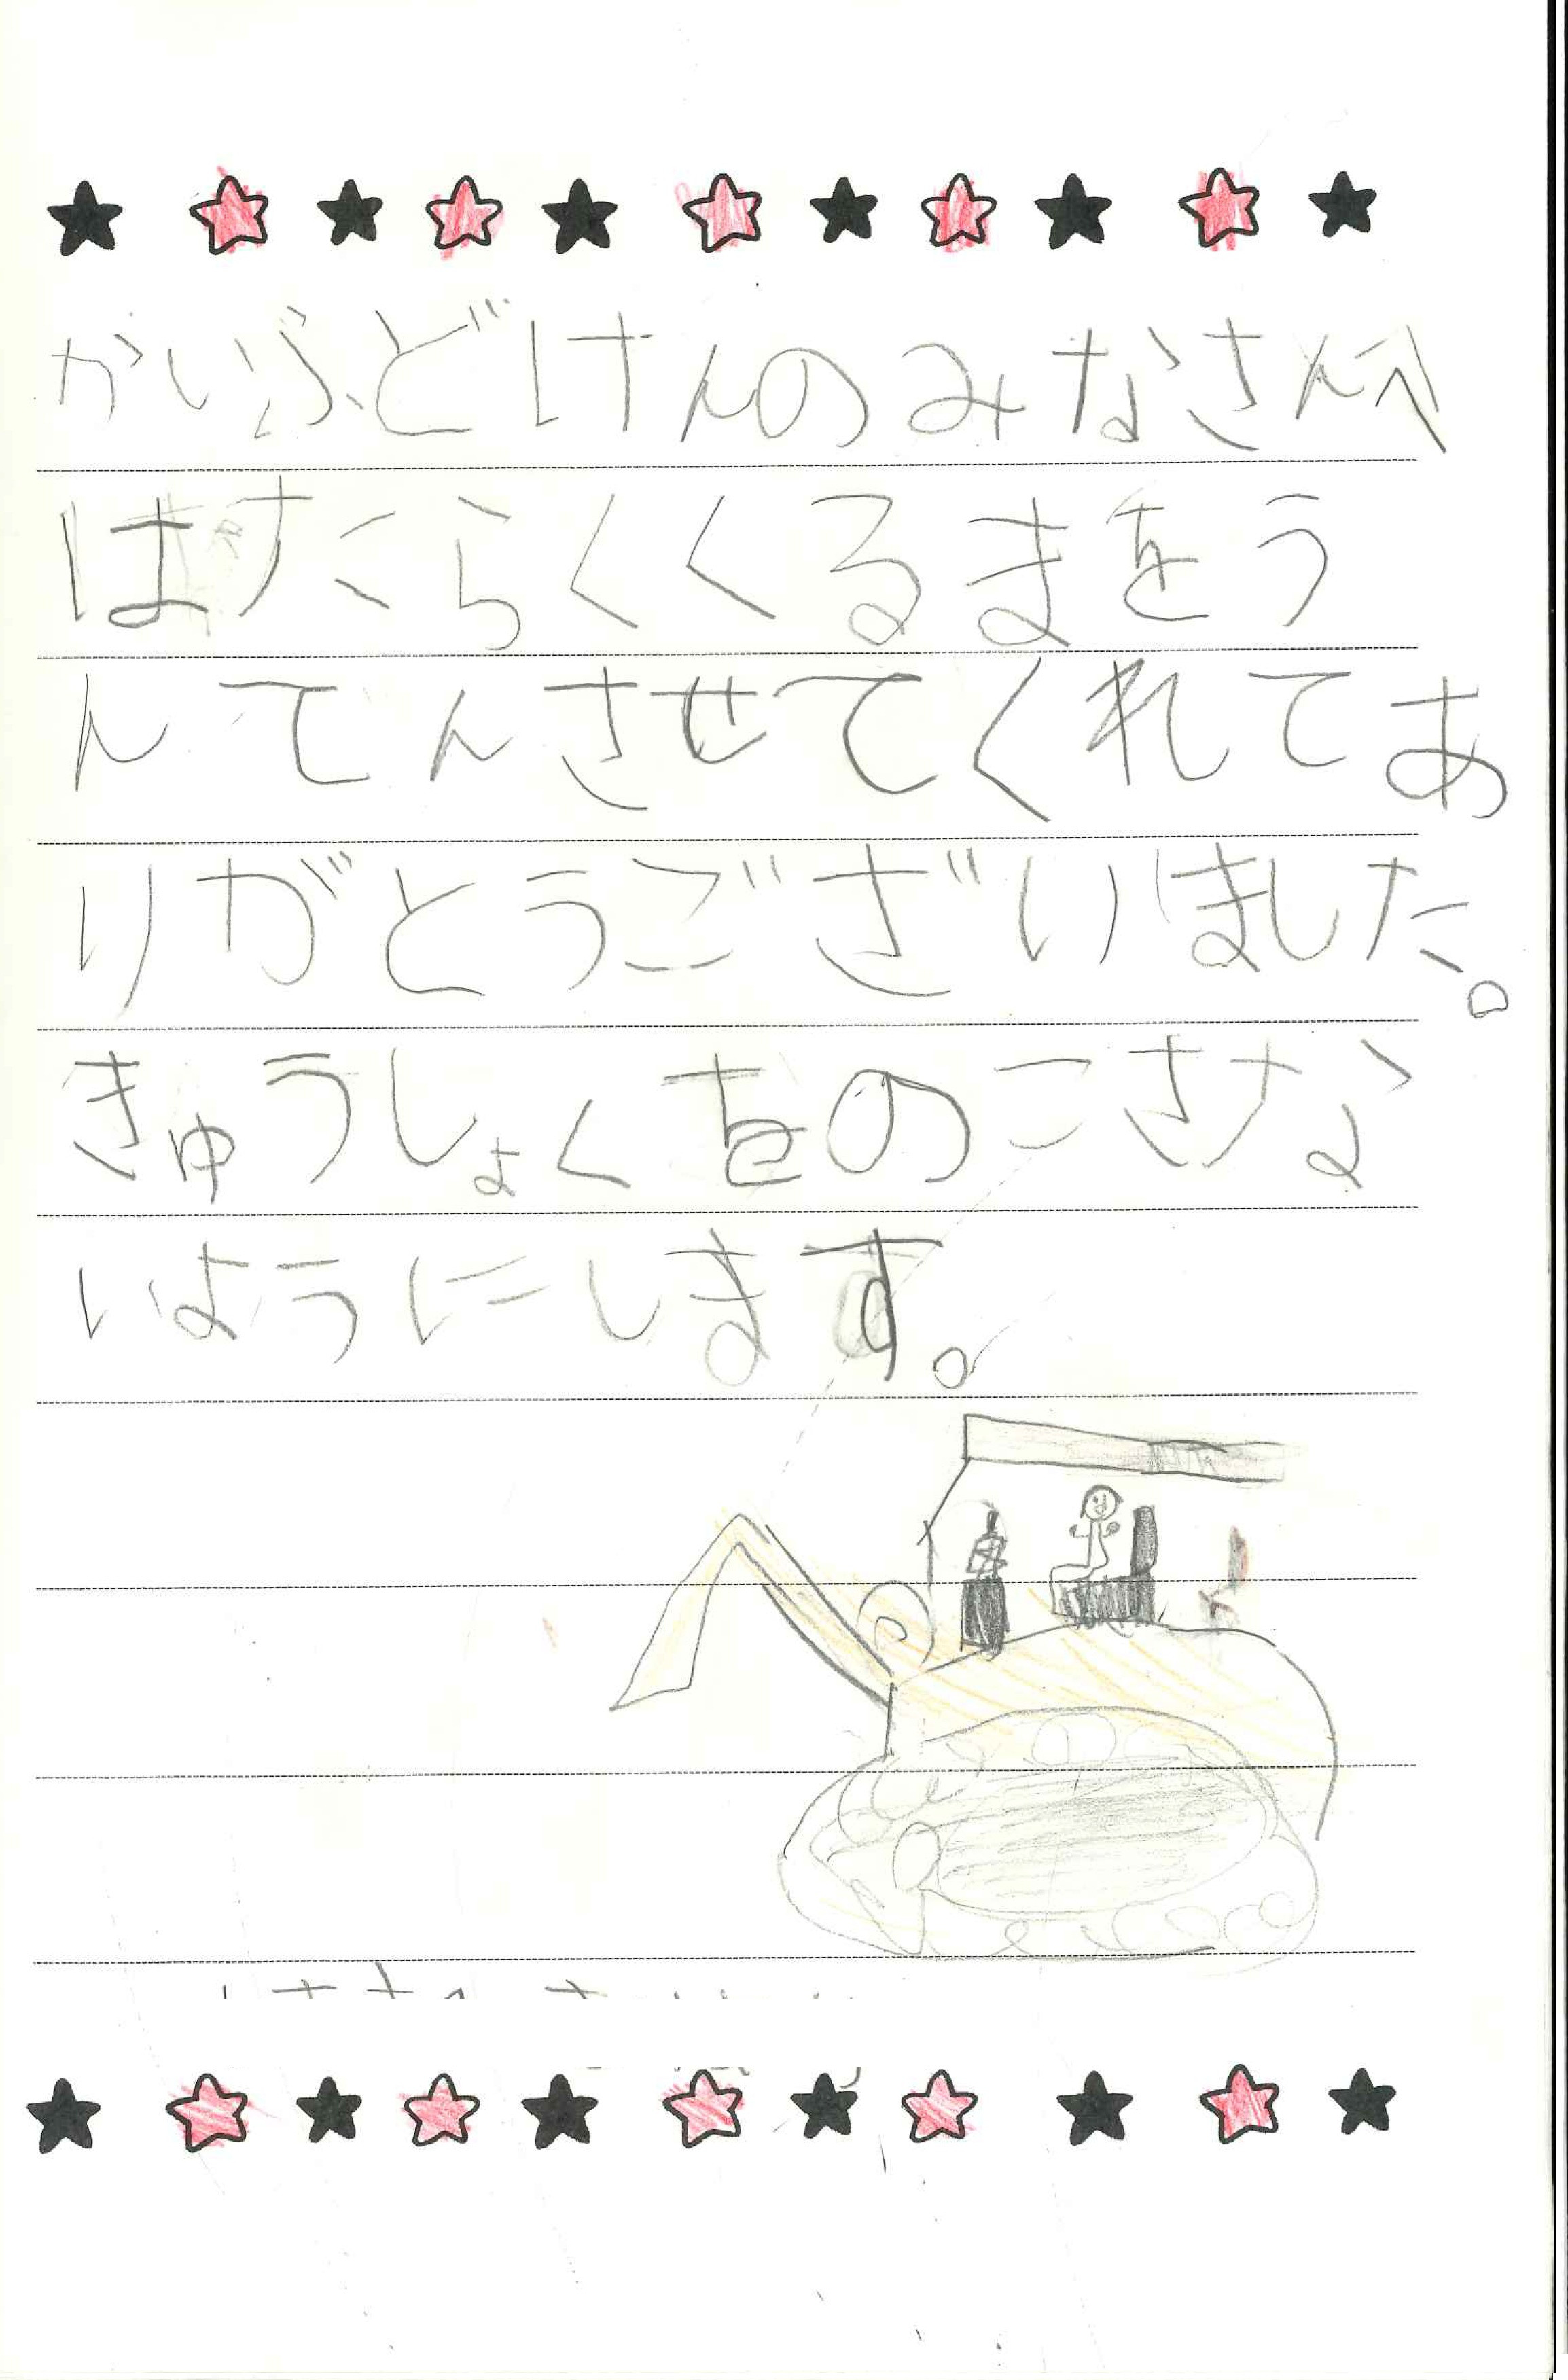 かいぶどけんのみなさんへ
はたらくくるまをう
んてんさせてくれてあ
りがとうございました。
きゅうしょくをのこさな
いようにします。